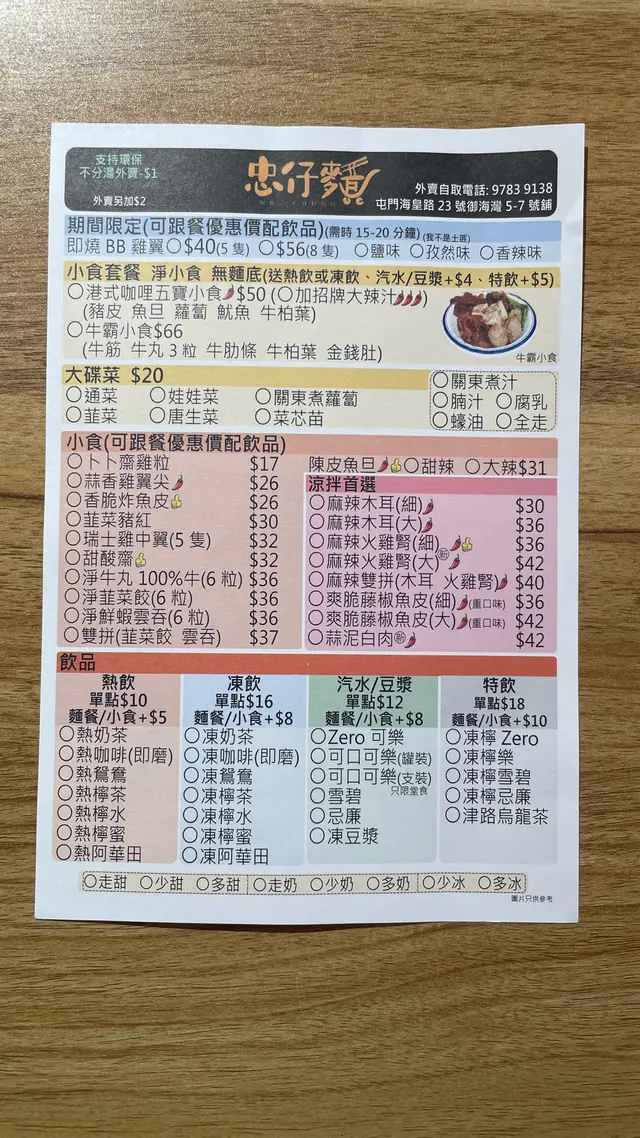 支持環保
不分湯外賣-$1
外賣另加$2
忠仔麵
MR. CHUNG
外賣自取電話: 9783 9138
屯門海皇路 23 號御海灣 5-7 號舖
期間限定(可跟餐優惠價配飲品)(需時 15-20 分鐘) (我不是土匪)
即燒 BB 雞翼〇$40(5 隻) 〇$56(8 隻) 〇鹽味 〇孜然味 〇香辣味
小食套餐 淨小食 無麵底(送熱飲或凍飲、汽水/豆漿+$4、特飲+$5)
〇港式咖喱五寶小食🌶$50 (〇加招牌大辣汁🌶🌶🌶)
(豬皮 魚旦 蘿蔔 魷魚 牛柏葉)
〇牛霸小食$66
(牛筋 牛丸 3 粒 牛肋條 牛柏葉 金錢肚)
牛霸小食
大碟菜 $20
〇通菜 〇娃娃菜 〇關東煮蘿蔔
〇韮菜 〇唐生菜 〇菜芯苗
〇關東煮汁
〇腩汁 〇腐乳
〇蠔油 〇全走
小食(可跟餐優惠價配飲品)
〇卜卜齋雞粒 $17
〇蒜香雞翼尖🌶 $26
〇香脆炸魚皮👍 $26
〇韮菜豬紅 $30
〇瑞士雞中翼(5 隻) $32
〇甜酸齋👍 $32
〇淨牛丸 100%牛(6 粒) $36
〇淨韮菜餃(6 粒) $36
〇淨鮮蝦雲吞(6 粒) $36
〇雙拼(韮菜餃 雲吞) $37
陳皮魚旦🌶👍〇甜辣 〇大辣$31
涼拌首選
〇麻辣木耳(細)🌶 $30
〇麻辣木耳(大)🌶 $36
〇麻辣火雞腎(細)🌶👍 $36
〇麻辣火雞腎(大)新🌶 $42
〇麻辣雙拼(木耳 火雞腎)🌶 $40
〇爽脆藤椒魚皮(細)🌶(重口味) $36
〇爽脆藤椒魚皮(大)🌶(重口味) $42
〇蒜泥白肉新🌶 $42
飲品
熱飲
單點$10
麵餐/小食+$5
〇熱奶茶
〇熱咖啡(即磨)
〇熱鴛鴦
〇熱檸茶
〇熱檸水
〇熱檸蜜
〇熱阿華田
凍飲
單點$16
麵餐/小食+$8
〇凍奶茶
〇凍咖啡(即磨)
〇凍鴛鴦
〇凍檸茶
〇凍檸水
〇凍檸蜜
〇凍阿華田
汽水/豆漿
單點$12
麵餐/小食+$8
〇Zero 可樂
〇可口可樂(罐裝)
〇可口可樂(支裝)
只限堂食
〇雪碧
〇忌廉
〇凍豆漿
特飲
單點$18
麵餐/小食+$10
〇凍檸 Zero
〇凍檸樂
〇凍檸雪碧
〇凍檸忌廉
〇津路烏龍茶
〇走甜 〇少甜 〇多甜 〇走奶 〇少奶 〇多奶 〇少冰 〇多冰
圖片只供參考